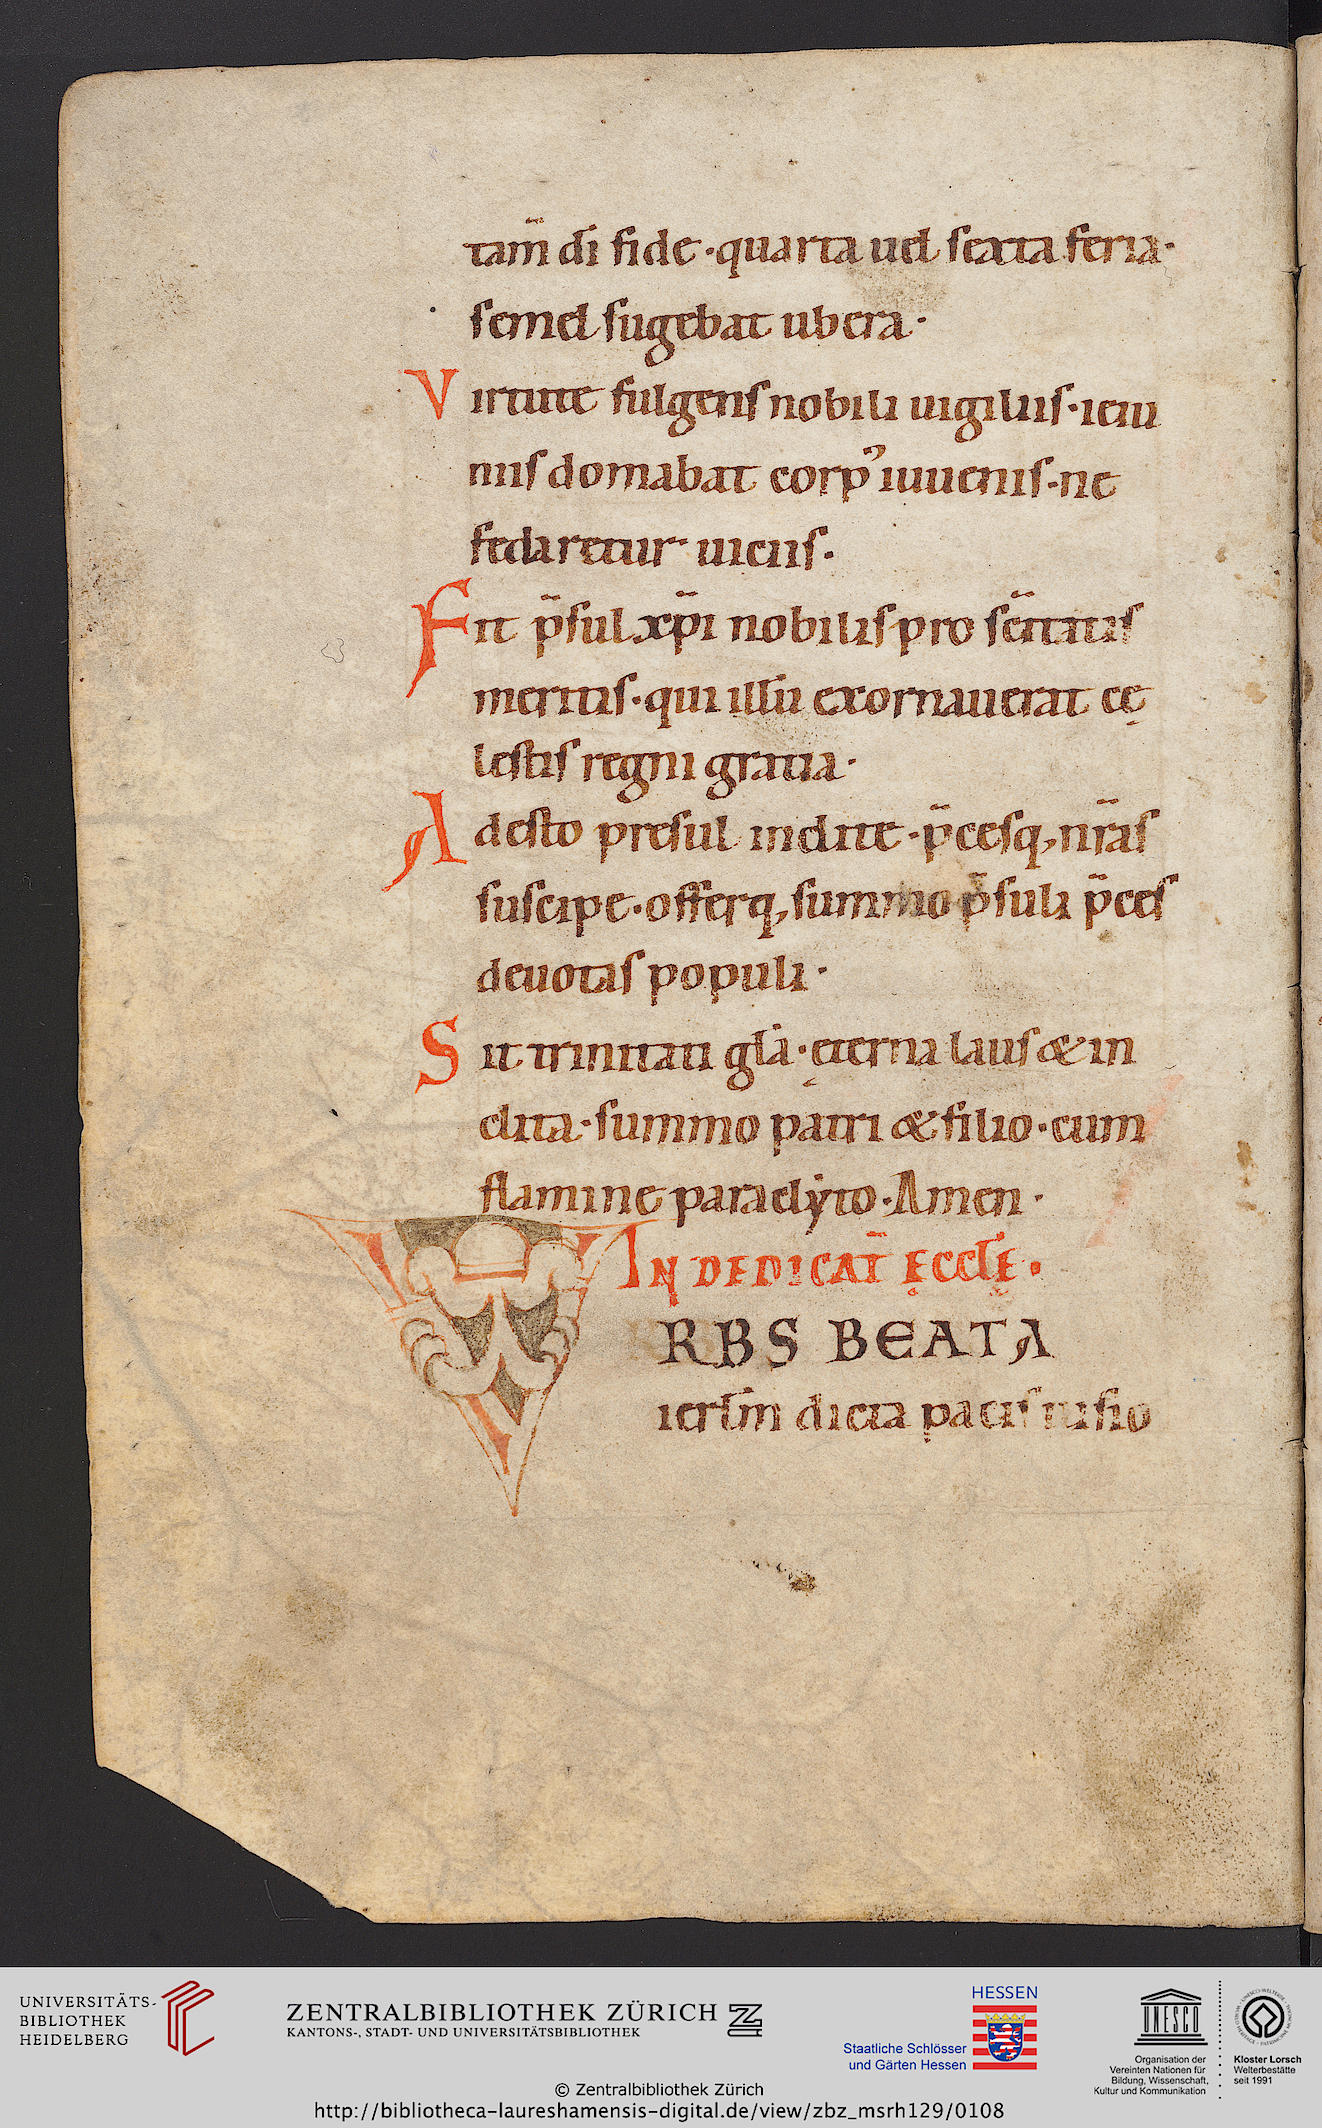 tam̄ dī fide · quarta uel sexta feria ·
semel sugebat ubera ·
Virtute fulgens nobili uigiliis · ieiu
niis domabat corp᾿ iuuenis · ne
fedaretur uiciis ·
Fit p̄sul xp̄i nobilis pro sc̄itatis
meritis · qui illū exornauerat cę
lestis regni gratia ·
Adesto presul inclite · p̄cesq, nr̄as
suscipe · offerq, summo p̄suli p̄ces
deuotas populi ·
Sit trinitati gl̄a · ęterna laus & in
clita · summo patri & filio · cum
flamine paraclẏto · Amen ·
IN DEDICAT̄ ĘCCL̄Ę ·
VRBS BEATA
ierl̄m dicta pacis uisio
UNIVERSITÄTS-
BIBLIOTHEK
HEIDELBERG
ZENTRALBIBLIOTHEK ZÜRICH
KANTONS-, STADT- UND UNIVERSITÄTSBIBLIOTHEK
HESSEN
Staatliche Schlösser
und Gärten Hessen
UNESCO
Organisation der
Vereinten Nationen für
Bildung, Wissenschaft,
Kultur und Kommunikation
Kloster Lorsch
Welterbestätte
seit 1991
© Zentralbibliothek Zürich
http://bibliotheca-laureshamensis-digital.de/view/zbz_msrh129/0108